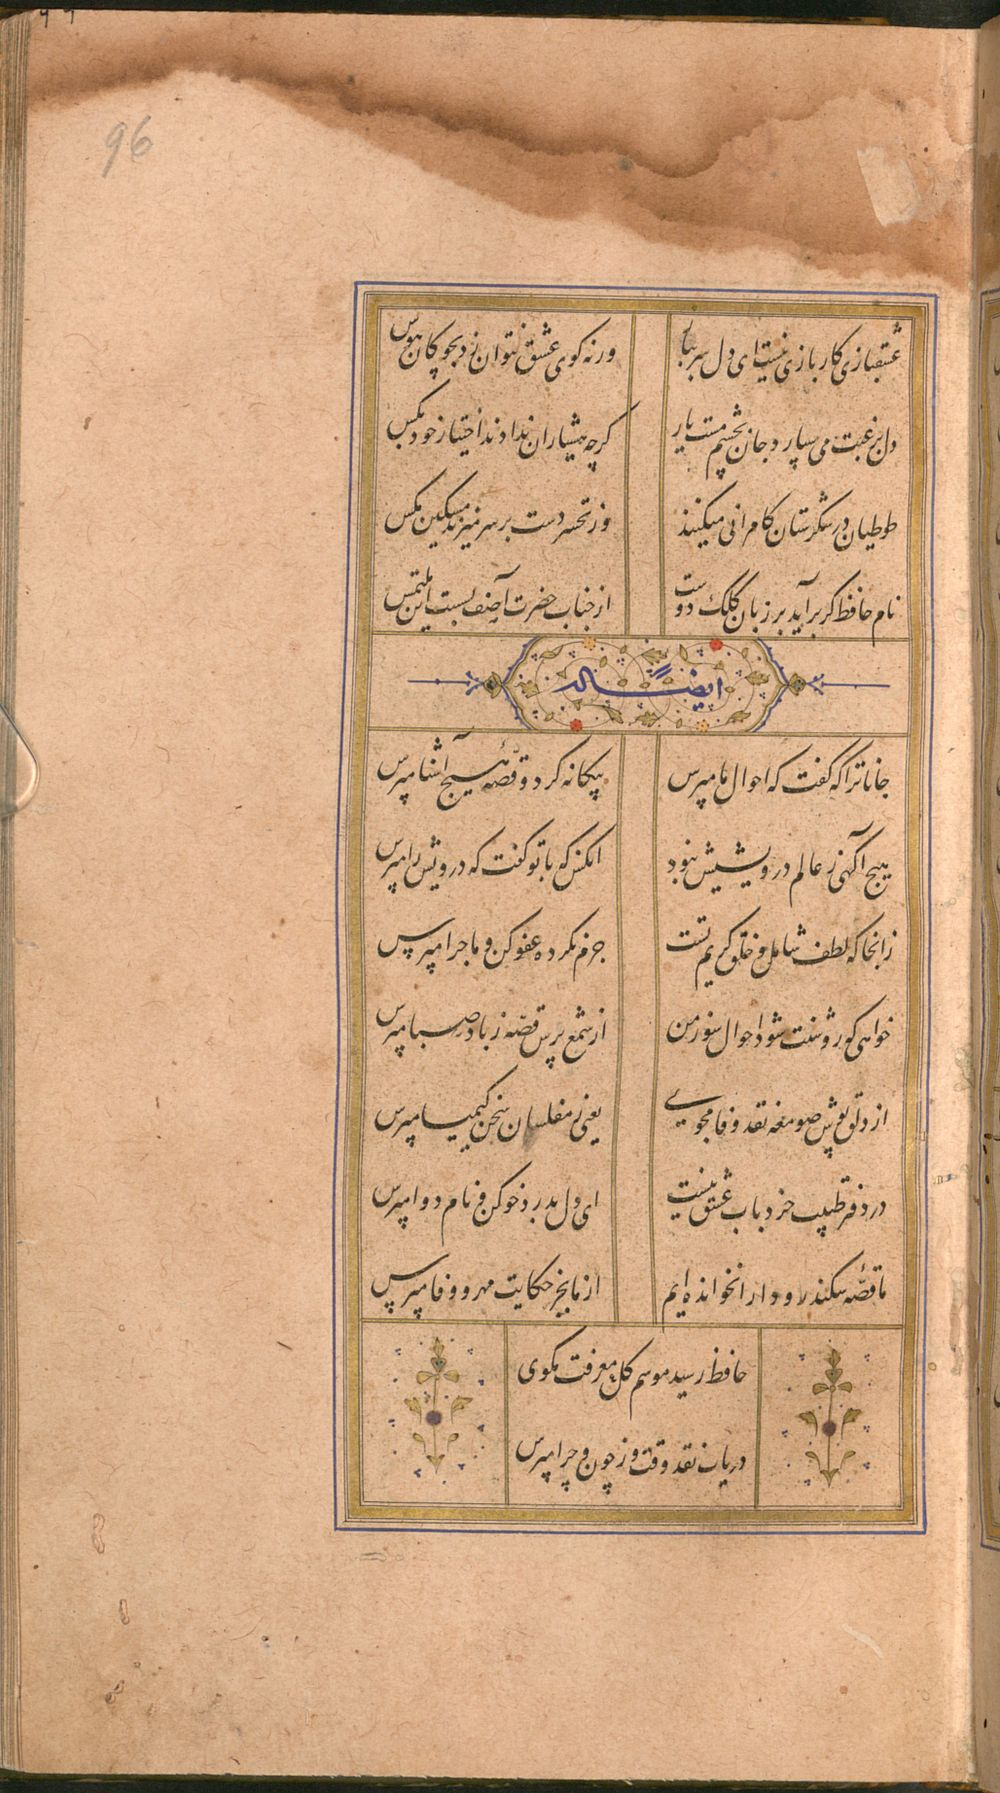 96
عشقبازی کار بازی نیست ای دل سر بباز
ورنه کوی عشق نتوان زد بچوکان هوس
دل برغبت می سپارد جان بچشم مست یار
کرچه هشیاران ندادند اختیار خود بکس
طوطیان در شکرستان کامرانی میکنند
وز تحسر دست بر سر میزند مسکین مکس
نام حافظ کر برآید بر زبان کلک دوست
از جناب حضرت آصف بسست این ملتمس
ایضاً له
جانا ترا که گفت که احوال ما مپرس
بیکانه کرد و قصّهٔ هیچ آشنا مپرس
هیچ آکهی ز عالم درویشیش نبود
انکس که با تو کفت که درویش را مپرس
زانجا که لطف شامل و خلق کریم تست
جرم نکرده عفو کن و ماجرا مپرس
خواهی که روشنت شود احوال سوز من
از شمع پرس قصّه ز باد صبا مپرس
از دلق پوش صومعه نقد وفا مجوی
یعنی ز مفلسان سخن کیمیا مپرس
در دفتر طبیب خرد باب عشق نیست
ای دل بدرد خو کن و نام دوا مپرس
ما قصّهٔ سکندر و دارا نخوانده ایم
از ما بجز حکایت مهر و وفا مپرس
حافظ رسید موسم کل معرفت مکوی
دریاب نقد وقت و ز چون و چرا مپرس